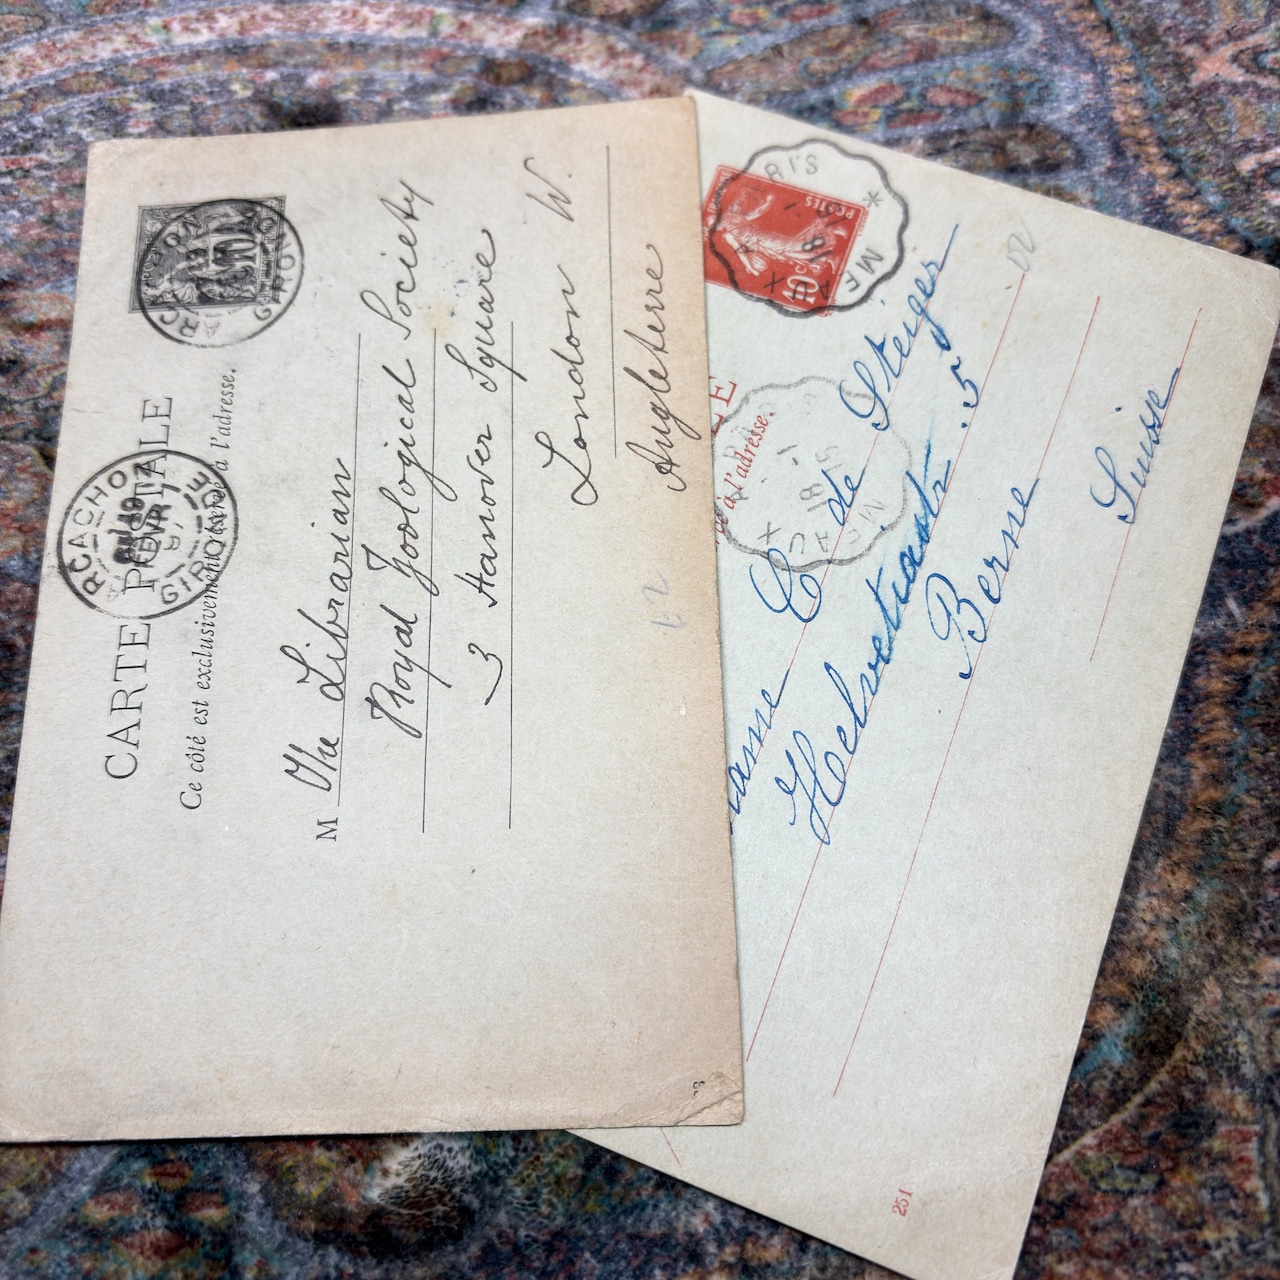 CARTE POSTALE
Ce côté est exclusivement réservé à l'adresse.
ARCACHON
GIRONDE
ARCACHON
GIRONDE
10
M The Librarian
Royal Zoological Society
3 Hanover Square
London W.
Angleterre
POSTES
10c
MEAUX
18
à l'adresse.
C de Steiger
Helvetiastr. 5
Berne
Suisse
251